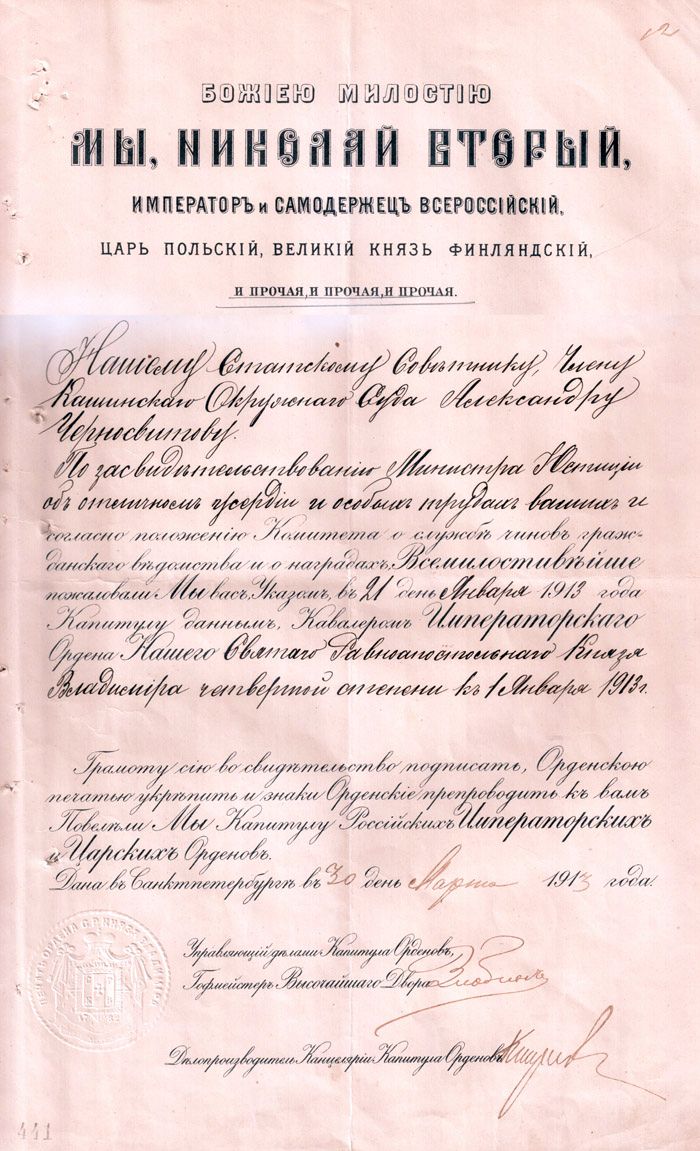 12
БОЖІЕЮ МИЛОСТІЮ
МЫ, НИКОЛАЙ ВТОРЫЙ,
ИМПЕРАТОРЪ и САМОДЕРЖЕЦЪ ВСЕРОССІЙСКІЙ,
ЦАРЬ ПОЛЬСКІЙ, ВЕЛИКІЙ КНЯЗЬ ФИНЛЯНДСКІЙ,
И ПРОЧАЯ, И ПРОЧАЯ, И ПРОЧАЯ.
Нашему Статскому Совѣтнику, Члену
Кашинскаго Окружнаго Суда Александру
Черносвитову.
По засвидѣтельствованію Министра Юстиціи
объ отличномъ усердіи и особыхъ трудахъ вашихъ и
согласно положенію Комитета о службѣ чиновъ граж-
данскаго вѣдомства и о наградахъ, Всемилостивѣйше
пожаловали Мы васъ, Указомъ, въ 21 день Января 1913 года
Капитулу даннымъ, Кавалеромъ Императорскаго
Ордена Нашего Святаго Равноапостольнаго Князя
Владиміра четвертой степени къ 1 Января 1913 г.
Грамоту сію во свидѣтельство подписать, Орденскою
печатью укрѣпить и знаки Орденскіе препроводить къ вамъ
Повелѣли Мы Капитулу Россійскихъ Императорскихъ
и Царскихъ Орденовъ.
Дана въ Санктпетербургѣ въ 30 день Марта 1913 года.
Управляющій дѣлами Капитула Орденовъ,
Гофмейстеръ Высочайшаго Двора
Дѣлопроизводитель Канцеляріи Капитула Орденовъ
441